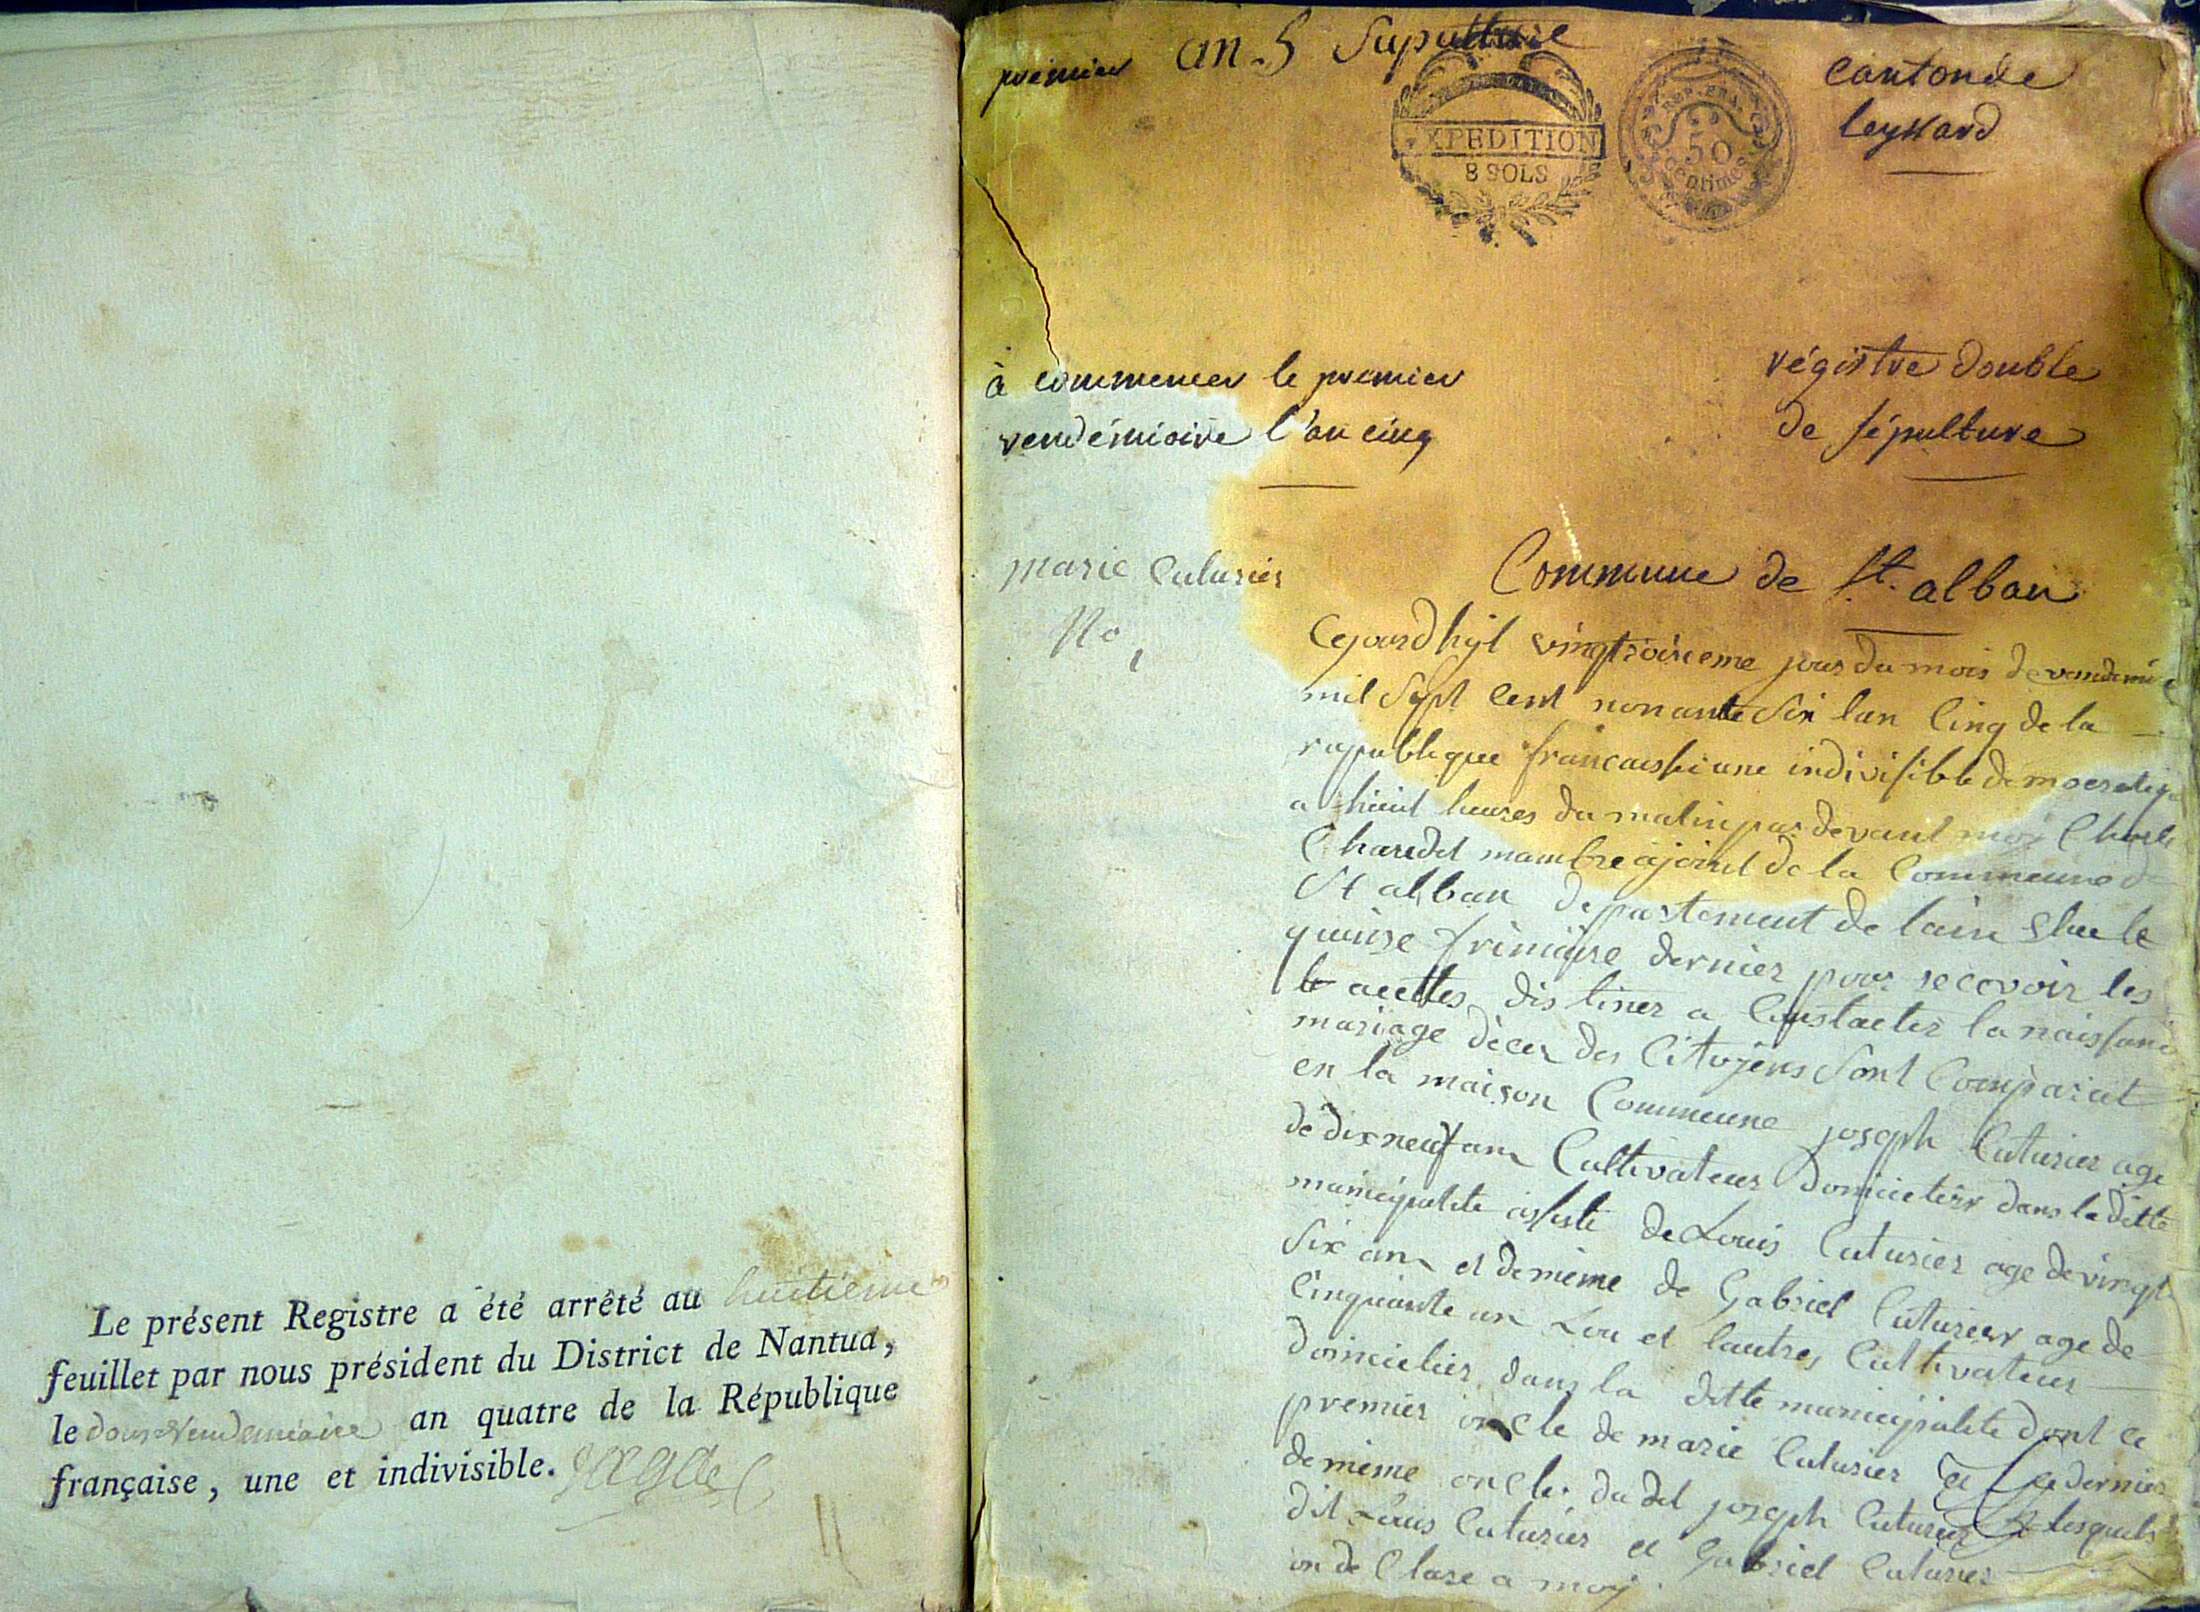 Le présent Registre a été arrêté au huitieme
feuillet par nous président du District de Nantua,
le douze Vendemiaire an quatre de la République
française, une et indivisible.
premier an 5 Sepulture
cantonde
leyssard
EXPEDITION
8 SOLS
REP. FRA.
50
centimes
à commencer le premier
vendémiaire l'an cinq
régistre double
de sépulture
marie Cuturier
No 1
Commune de St. alban
Cejourdhyl vingtroisieme jour du mois de vendemi
mil Sept Cent nonante Six lan Cinq de la
republique francaisse une indivisible democratiq
a huit heures du matin par devant moy Charle
Charidet mambre ajoint de la Commune d
St alban departement de lain Elu le
quinse frimaire dernier pour recevoir les
acettes distines a Constacter la naissanc
mariage déces des Citoyens Sont Comparut
en la maison Commune joseph Cuturier age
de dix neuf ans Cultivateur domicielier dans la ditte
municipalite asisté de Louis Cuturier age de vingt
Six ans et de mème de Gabriel Cuturier age de
Cinquante ans Lou et lautre Cultivateur
domicielier dans la ditte municipalite dont le
premier oncle de marie Cuturier et le dernier
de mème oncle du dit joseph Cuturier lesquels
dit Louis Cuturier et Gabriel Cuturier
on de Clare a moy